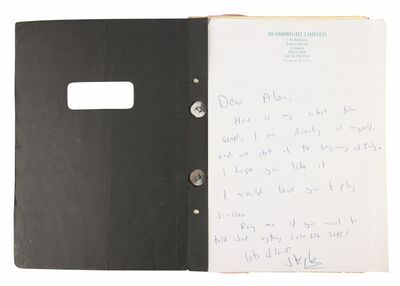 BEAMBRIGHT LIMITED
London
Dear Alan,
Here is my latest film
script. I am directing it myself,
and we start at the beginning of July.
I hope you like it
I would love you to play
Sinclair.
Ring me if you want to
talk about anything
lots of love,
Stephen